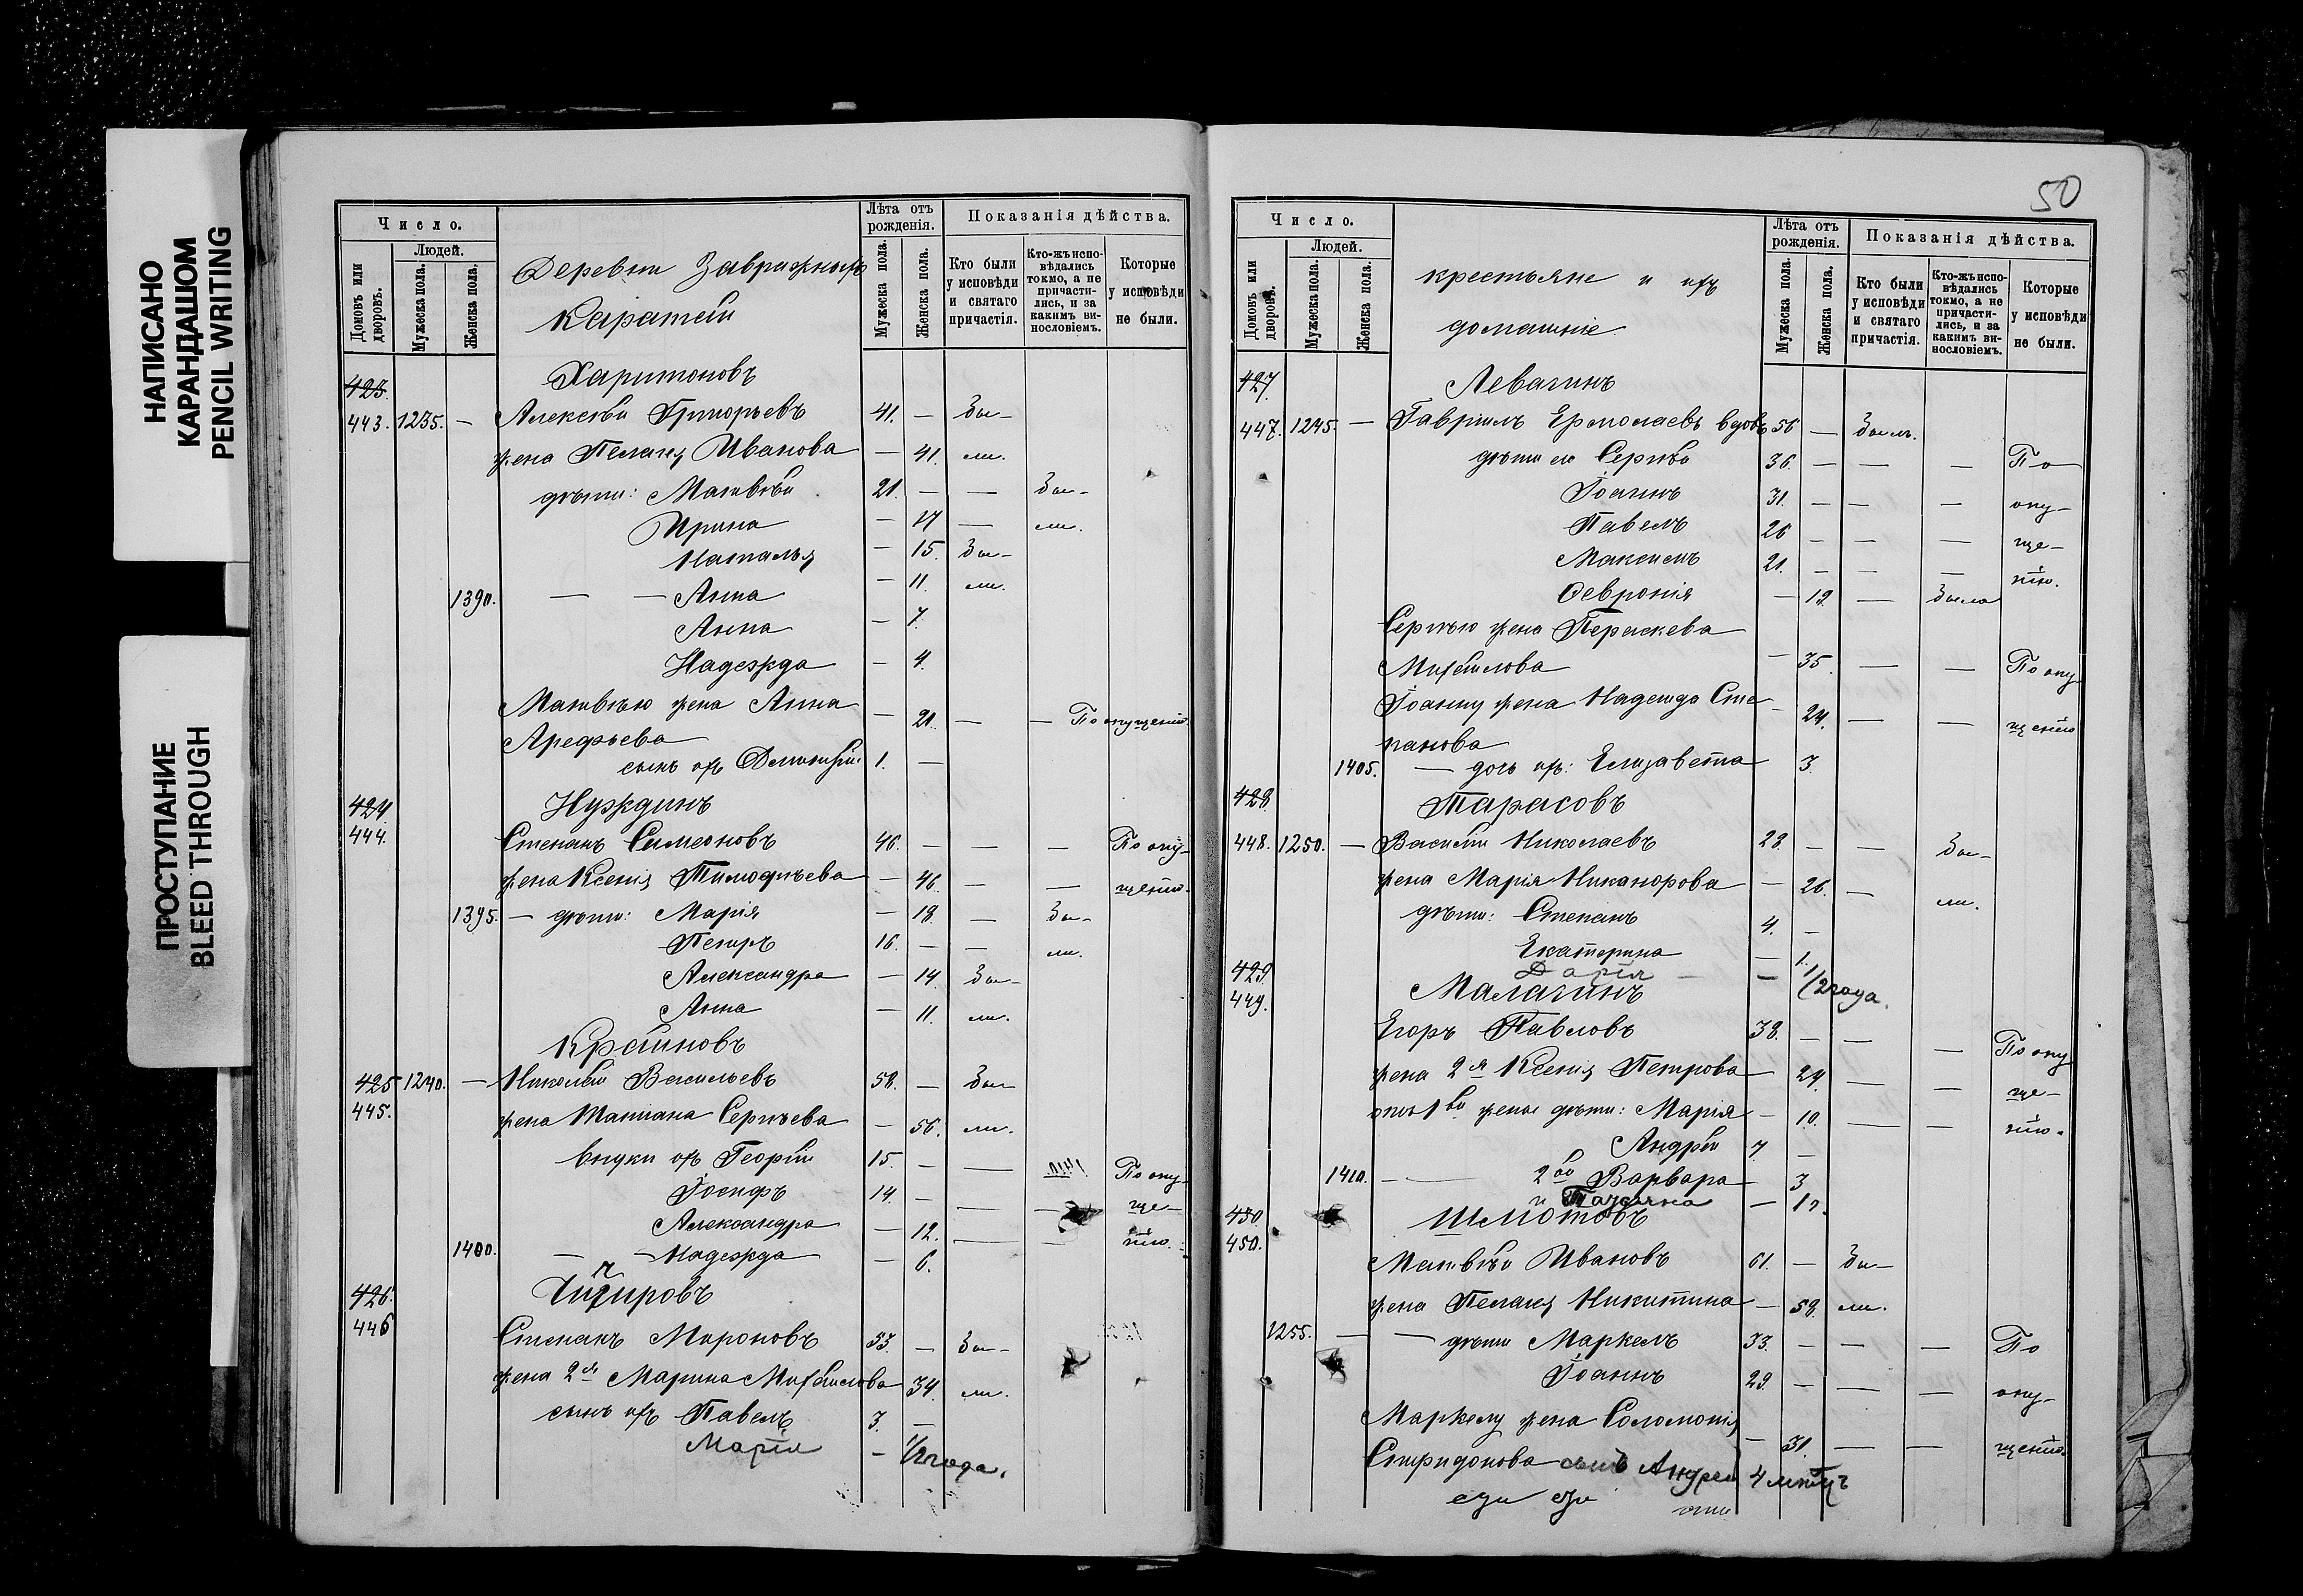 НАПИСАНО
КАРАНДАШОМ
PENCIL WRITING
ПРОСТУПАНИЕ
BLEED THROUGH
Число.
Людей.
Домовъ или дворовъ.
Мужеска пола.
Женска пола.
Деревни
Каратеи
Лѣта отъ рожденія.
Мужеска пола.
Женска пола.
Показанія дѣйства.
Кто были у исповѣди и святаго причастія.
Кто-жъ исповѣдались токмо, а не причастились, и за какимъ винословіемъ.
Которые у исповѣди не были.
423. Харитоновъ
443. 1235. — Алексѣй Григорьевъ 41. — Бы-
жена Пелагея Иванова — 41. ли.
дѣти: Матвѣй 21. — — Бы-
Ирина — 17 — ли.
Наталья — 15. Бы-
1390. — — Анна — 11. ли.
Анна — 7.
Надежда — 4.
Матвѣю жена Анна
Арефьева — 21. — — По опущенію.
сынъ ихъ Димитрій 1. —
424. Нуждинъ
444. Степанъ Симеоновъ 46. — — — По опу-
жена Ксенія Тимофѣева — 46. — — щенію.
1395. — дѣти: Марія — 18. — Бы-
Петръ 16. — — ли.
Александра — 14. Бы-
Анна — 11. ли.
Крайновъ
425 1240. — Николай Васильевъ 58. — Бы-
445. жена Татіана Сергѣева — 56. ли.
внуки ихъ Георгій 15. — — По опу-
Іосифъ 14. — — — ще-
Александра — 12. — — нію.
1400. — — Надежда — 6.
426.
446 Степанъ Мироновъ 53. — Бы-
жена 2я Марина Михайлова 34 ли.
сынъ ихъ Павелъ 3. —
Марія — 1/2 года.
50
Число.
Людей.
Домовъ или дворовъ.
Мужеска пола.
Женска пола.
крестьяне и ихъ
домашніе
Лѣта отъ рожденія.
Мужеска пола.
Женска пола.
Показанія дѣйства.
Кто были у исповѣди и святаго причастія.
Кто-жъ исповѣдались токмо, а не причастились, и за какимъ винословіемъ.
Которые у исповѣди не были.
427. Левагинъ
447. 1245. — Гавріилъ Ермолаевъ вдовъ 56 — Былъ.
дѣти его Сергѣй 36. — — — По
Іоаннъ 31. — — — опу-
Павелъ 26 — — — ще-
Максимъ 21. — — — нію.
Февронія — 19. — Была
Сергѣю жена Параскева
Михайлова — 35 — — По опу-
Іоанну жена Надежда Сте
панова — 24. — — щенію
1405. — дочь ихъ: Елизавета 3.
428. Тарасовъ
448. 1250. — Василій Николаевъ 28. — — Бы-
жена Марія Никанорова — 26. — ли.
дѣти: Степанъ 4. —
Екатерина — 1.
Дарія — — 1/2 года.
429. Малагинъ
449.
Егоръ Павловъ 38. — — — По опу
жена 2я Ксенія Петрова 24. — — ще-
отъ 1ой жены дѣти: Марія — 10. — — нію.
Андрей 7 —
1410. — — 2ой Варвара 3
и Татіяна — 1
430. Шмотовъ
450.
Матвѣй Ивановъ 61. — Бы-
жена Пелагея Никитина — 58. ли.
1255. — — дѣти Маркелъ 33. — — — По
Іоаннъ 29. — — — опу-
Маркелу жена Соломонія
Спиридонова — 31. — — щенію.
сынъ Андрей 4 мѣсяц